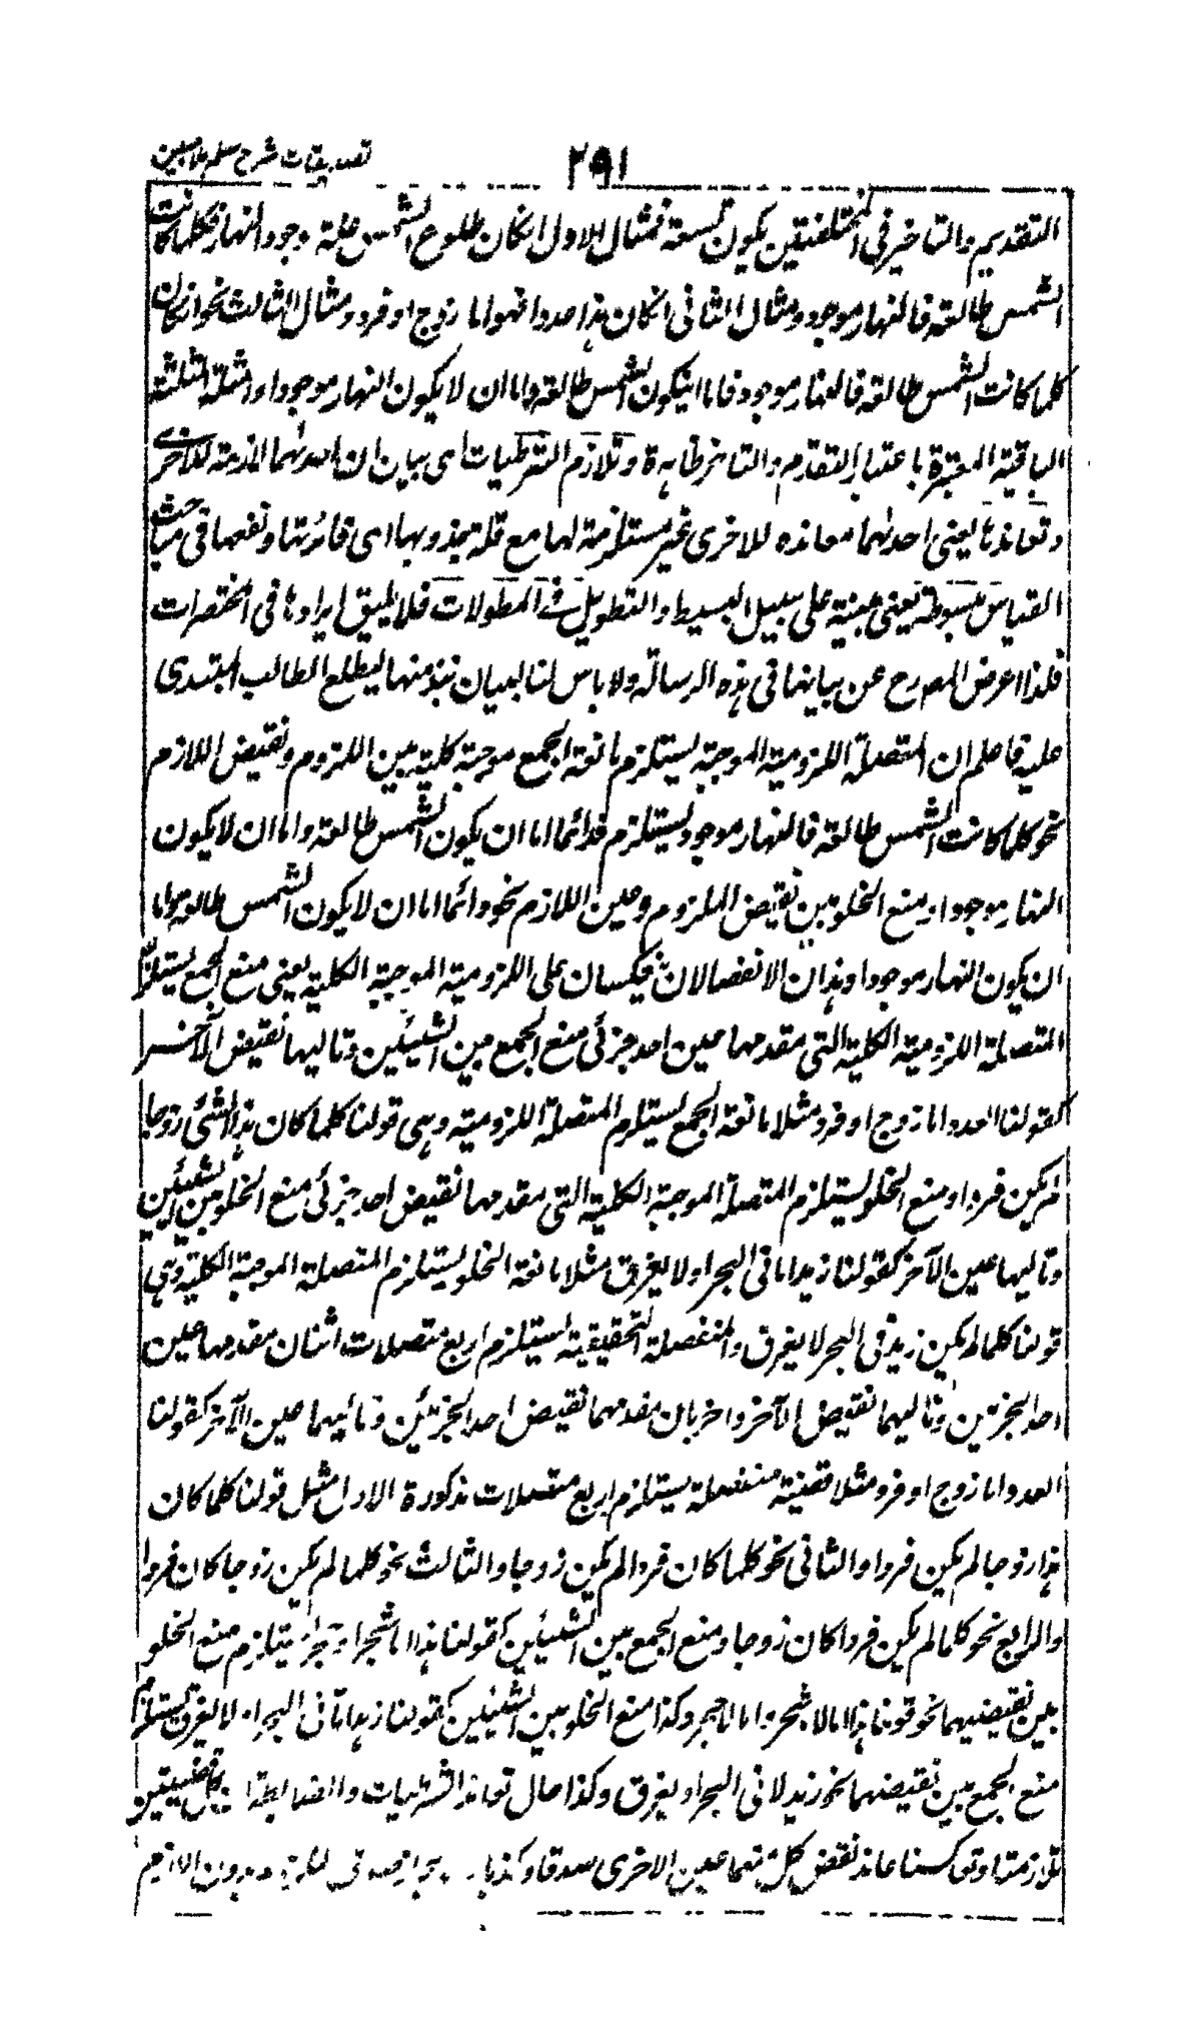 تصدیقات شرح سلم ملا مبین
۲۹۱
التقدیم والتاخیر فی المختلفتین یکون تسعة فمثال الاول ان کان طلوع الشمس علة وجود النهار فکلما کانت
الشمس طالعة فالنهار موجود ومثال الثانی ان کان هذا عددا فهو اما زوج او فرد ومثال الثالث نحو ان کان
کلما کانت الشمس طالعة فالنهار موجود فاما ان یکون الشمس طالعة واما ان لا یکون النهار موجودا وامثلة الثلثة
الباقیة المعتبرة باعتبار التقدم والتاخر ظاهرة وتلازم الشرطیات ای بیان ان احدهما لازمة للاخری
وتعاندها یعنی احدهما معاندة للاخری غیر مستلزمة لها مع قلة جدوبها ای فائدتها ونفعها فی مباحث
القیاس مبسوطة یعنی مبینة علی سبیل البسیط والتطویل فی المطولات فلا یلیق ایرادها فی المختصرات
فلذا اعرض المصرح عن بیانها فی هذه الرسالة ولا باس لنا لبیان نبذ منها لیطلع الطالب المبتدی
علیه فاعلم ان المتصلة اللزومیة الموجبة یستلزم مانعة الجمع موجبة کلیة بین الملزوم ونقیض اللازم
نحو کلما کانت الشمس طالعة فالنهار موجود یستلزم قد دائما اما ان یکون الشمس طالعة واما ان لا یکون
النهار موجودا ومنع الخلو بین نقیض الملزوم وعین اللازم نحو دائما اما ان لا یکون الشمس طالعة واما
ان یکون النهار موجودا وهذان الانفصالان ینعکسان علی اللزومیة الموجبة الکلیة یعنی منع الجمع یستلزم
المتصلة اللزومیة الکلیة التی مقدمها عین احد جزئی منع الجمع بین الشیئین وتالیها نقیض الآخر
کقولنا العدد اما زوج او فرد مثلا مانعة الجمع یستلزم المتصلة اللزومیة وهی قولنا کلما کان هذا الشئ زوجا
لم یکن فردا ومنع الخلو یستلزم المتصلة الموجبة الکلیة التی مقدمها نقیض احد جزئی منع الخلو بین الشیئین
وتالیها عین الآخر کقولنا زید اما فی البحر او لا یغرق مثلا مانعة الخلو یستلزم المتصلة الموجبة الکلیة وهی
قولنا کلما لم یکن زید فی البحر لا یغرق والمنفصلة الحقیقیة یستلزم اربع متصلات اثنان مقدمهما عین
احد الجزئین وتالیهما نقیض الآخر واخریان مقدمهما نقیض احد الجزئین وتالیهما عین الآخر کقولنا
العدد اما زوج او فرد مثلا قضیة منفصلة یستلزم اربع متصلات مذکورة الاول مثل قولنا کلما کان
هذا زوجا لم یکن فردا والثانی نحو کلما کان فردا لم یکن زوجا والثالث نحو کلما لم یکن زوجا کان فردا
والرابع نحو کلما لم یکن فردا کان زوجا ومنع الجمع بین الشیئین کقولنا هذا اما شجر او حجر یستلزم منع الخلو
بین نقیضیهما نحو قولنا هذا اما لا شجر واما لا حجر وکذا منع الخلو بین الشیئین کقولنا زید اما فی البحر او لا یغرق یستلزم
منع الجمع بین نقیضهما نحو زید لا فی البحر او یغرق وکذا حال تعاند الشرطیات والضابطة کل قضیتین
تلازمتا وتعاکستا عاند نقیض کل منهما عین الاخری صدقا وکذبا لجواز صدق الملزوم بدون اللازم